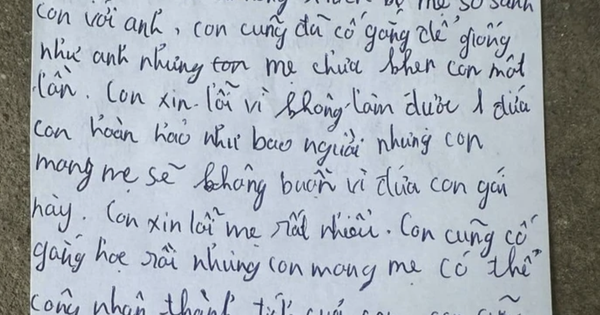 bị mẹ so sánh
con với anh, con cũng đã cố gắng để giống
như anh nhưng con mẹ chưa khen con một
lần. Con xin lỗi vì không làm được 1 đứa
con hoàn hảo như bao người nhưng con
mong mẹ sẽ không buồn vì đứa con gái
này. Con xin lỗi mẹ rất nhiều. Con cũng cố
gắng học rồi nhưng con mong mẹ có thể
công nhận thành